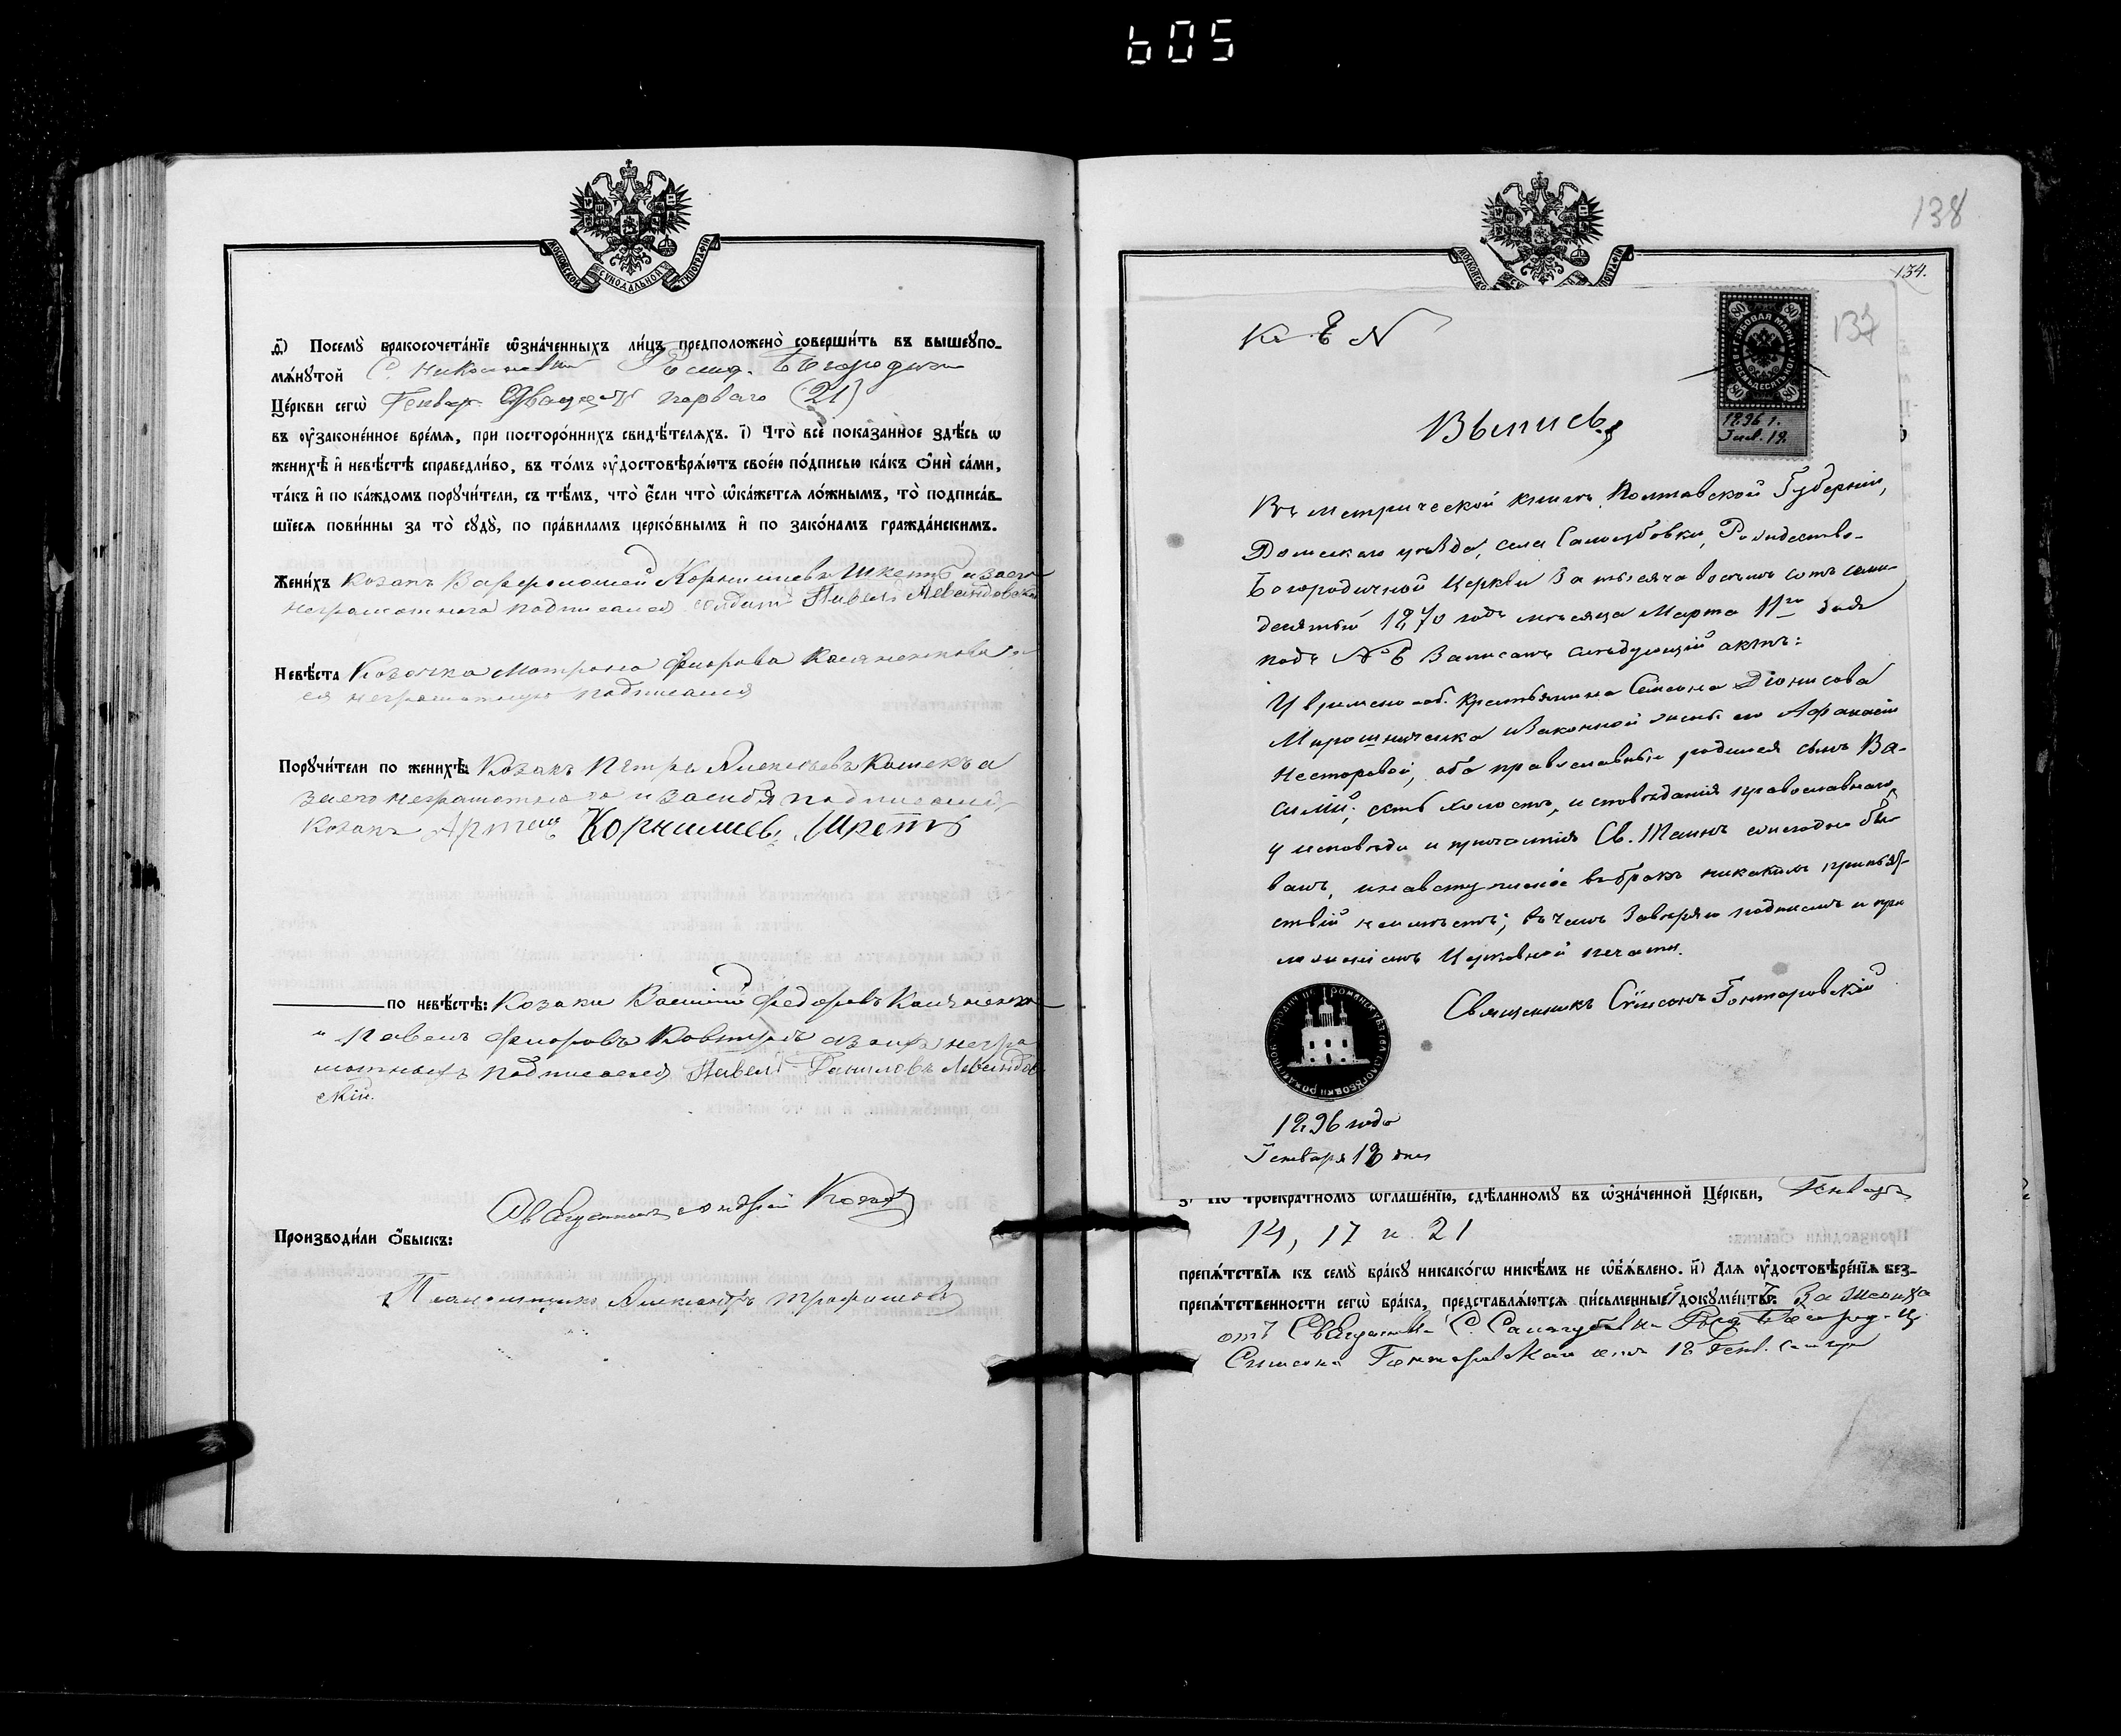 605
МОСКОВСКОЙ СѴНОДАЛЬНОЙ ТИПОГРАФІИ
д҃) Посемꙋ̀ вракосочета́нїе ѡ҆зна́ченныхъ ли́цъ предположено̀ соверши́ть въ вышеꙋпо-
мѧ́нꙋтой С. Рожд. Богородич
Це́ркви сегѡ̀ Генвар. Двадцать перваго (21)
въ ᲂу҆законе́нное вре́мѧ, при посторо́ннихъ свидѣ́телѧхъ. і҃) Что̀ всѐ показанное здѣ́сь ѡ
женихѣ̀ и҆ невѣ́стѣ справедли́во, въ то́мъ ᲂу҆достовѣрѧ́ютъ свое́ю по́дписью ка́къ ѻ҆нѝ са́ми,
та́къ и҆ по ка́ждомъ порꙋчи́тели, съ тѣ́мъ, что̀ є҆́сли что̀ ѡ҆ка́жетсѧ ло́жнымъ, то̀ подписа́в-
шїесѧ пови́нны за то̀ сꙋдꙋ̀, по пра́виламъ церко́внымъ и҆ по зако́намъ гражда́нскимъ.
Жени́хъ Козакъ Варфоломей Корнилиевъ Шкетъ а за его
неграмотнаго подписался солдат Павелъ Левандовскій
Невѣ́ста Козачка Матрона Флорова а за
ея неграмотную подписался
Порꙋчи́тели по женихѣ̀: Козакъ Петръ Алексѣевъ а
за его неграмотнаго и за себя подписался
Козакъ Артемъ Корнилиевъ Шкетъ
по невѣ́стѣ: Козаки Василій Федоровъ
и Павелъ Флоровъ Ковтунъ а за ихъ негра
мотныхъ подписался Павелъ Даниловъ Левандов
скій.
Священникъ Андрей
Производи́ли ѻ҆́быскъ:
Псаломщикъ Александръ Трофимовъ
138
134.
137
МОСКОВСКОЙ ТИПОГРАФІИ
80 80
ГЕРБОВАЯ МАРКА ВОСЕМЬДЕСЯТЪ КОП.
80 80
1896 г.
Генв. 18.
Къ № 
Выпись
Въ метрической книгѣ Полтавской Губерніи,
Роменскаго уѣзда, села Салогубовки, Рождество-
Богородичной Церкви за тысяча восемь сотъ семи-
десятый 1870 годъ мѣсяца Марта 11го дня
подъ № 6 записанъ слѣдующій актъ:
У времено-об. крестьянина Семіона Діонисова
Мирошниченка и законной жены его Афанасіи
Несторовой, оба православные родился сынъ Ва-
силій; есть холостъ, исповѣданія православнаго,
у исповѣди и причастія Св. Таинъ ежегодно бы-
валъ, и на вступленіе въ бракъ никакихъ препят-
ствій не имѣетъ; въ чемъ завѣряю подписью и при
ложеніемъ Церковной печати.
Священникъ Сѵмеонъ Гонтаровскій
1896 года
Генваря 18 дня
з҃) По троекра́тномꙋ ѡ҆глаше́нїю, сдѣ́ланномꙋ въ ѡ҆зна́ченной Це́ркви, Генваря
14, 17 и 21
препѧ́тствїѧ къ семꙋ̀ бра́кꙋ никако́гѡ никѣ́мъ не ѡ҆б̾ѧ́влено. и҃) Длѧ ᲂу҆достовѣре́нїѧ без-
препѧ́тственности сегѡ̀ бра́ка, представлѧ́ютсѧ пи́сьменные докꙋме́нты: За жениха
отъ Священника С. Салогубовки Рожд. Богород. Ц.
Симеона Гонтаровскаго отъ 18 Генв. с. г.